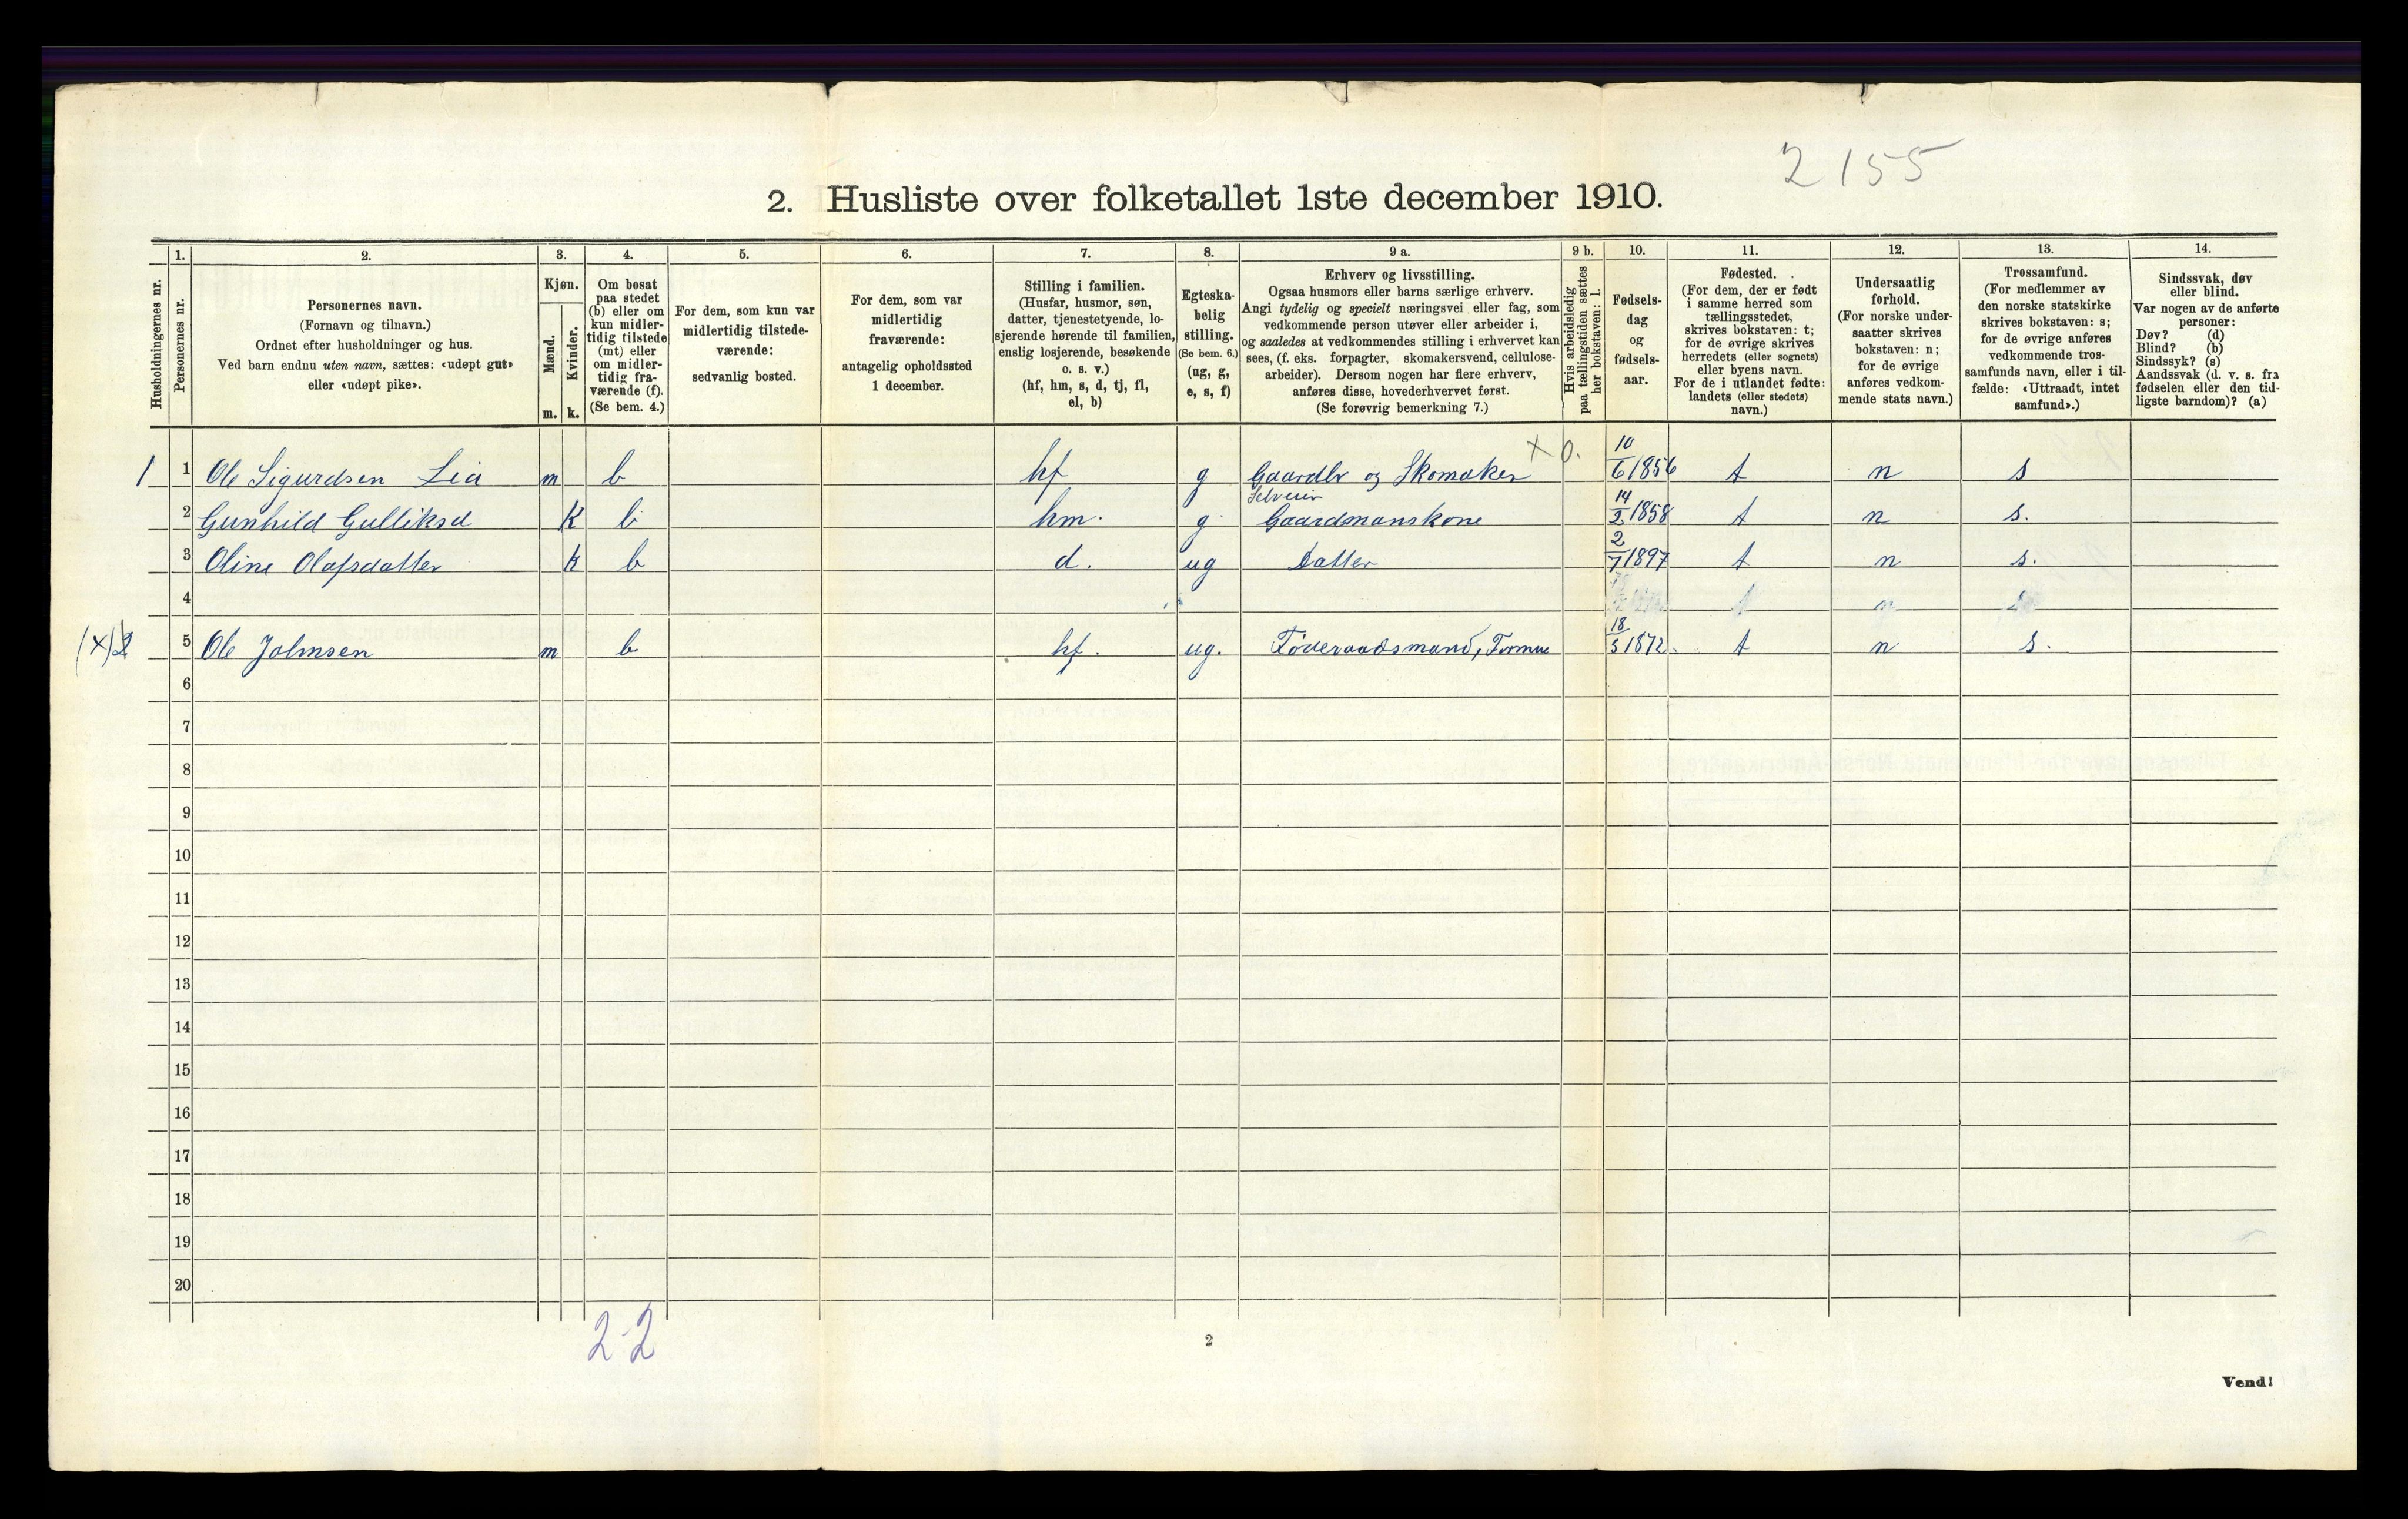 2155
2. Husliste over folketallet 1ste december 1910.
Husholdningernes nr.
1.
Personernes nr.
2.
Personernes navn.
(Fornavn og tilnavn.)
Ordnet efter husholdninger og hus.
Ved barn endnu uten navn, sættes: «udøpt gut»
eller «udøpt pike».
3.
Kjøn.
Mænd.
Kvinder.
m. k.
4.
Om bosat
paa stedet
(b) eller om
kun midler-
tidig tilstede
(mt) eller
om midler-
tidig fra-
værende (f).
(Se bem. 4.)
5.
For dem, som kun var
midlertidig tilstede-
værende:
sedvanlig bosted.
6.
For dem, som var
midlertidig
fraværende:
antagelig opholdssted
1 december.
7.
Stilling i familien.
(Husfar, husmor, søn,
datter, tjenestetyende, lo-
sjerende hørende til familien,
enslig losjerende, besøkende
o. s. v.)
(hf, hm, s, d, tj, fl,
el, b)
8.
Egteska-
belig
stilling.
(Se bem. 6.)
(ug, g,
e, s, f)
9 a.
Erhverv og livsstilling.
Ogsaa husmors eller barns særlige erhverv.
Angi tydelig og specielt næringsvei eller fag, som
vedkommende person utøver eller arbeider i,
og saaledes at vedkommendes stilling i erhvervet kan
sees, (f. eks. forpagter, skomakersvend, cellulose-
arbeider). Dersom nogen har flere erhverv,
anføres disse, hovederhvervet først.
(Se forøvrig bemerkning 7.)
9 b.
Hvis arbeidsledig
paa tællingstiden sættes
her bokstaven: l.
10.
Fødsels-
dag
og
fødsels-
aar.
11.
Fødested.
(For dem, der er født
i samme herred som
tællingsstedet,
skrives bokstaven: t;
for de øvrige skrives
herredets (eller sognets)
eller byens navn.
For de i utlandet fødte:
landets (eller stedets)
navn.)
12.
Undersaatlig
forhold.
(For norske under-
saatter skrives
bokstaven: n;
for de øvrige
anføres vedkom-
mende stats navn.)
13.
Trossamfund.
(For medlemmer av
den norske statskirke
skrives bokstaven: s;
for de øvrige anføres
vedkommende tros-
samfunds navn, eller i til-
fælde: «Uttraadt, intet
samfund».)
14.
Sindssvak, døv
eller blind.
Var nogen av de anførte
personer:
Døv? (d)
Blind? (b)
Sindssyk? (s)
Aandssvak (d. v. s. fra
fødselen eller den tid-
ligste barndom)? (a)
1 1 Ole Sigurdsen Lia m b hf g Gaardbr og Skomaker x 0. 10/6 1856 t n s
Selveier
2 Gunhild Gulliksd K b hm. g Gaardmanskone 14/2 1858 t n s.
3 Oline Olafsdatter k b d. ug Datter 2/7 1897 t n s.
4
(x) 2 5 Ole Johnsen m b hf. ug. Føderaadsmand, Formue 18/3 1872. t n s.
6
7
8
9
10
11
12
13
14
15
16
17
18
19
20
2-2
2
Vend!